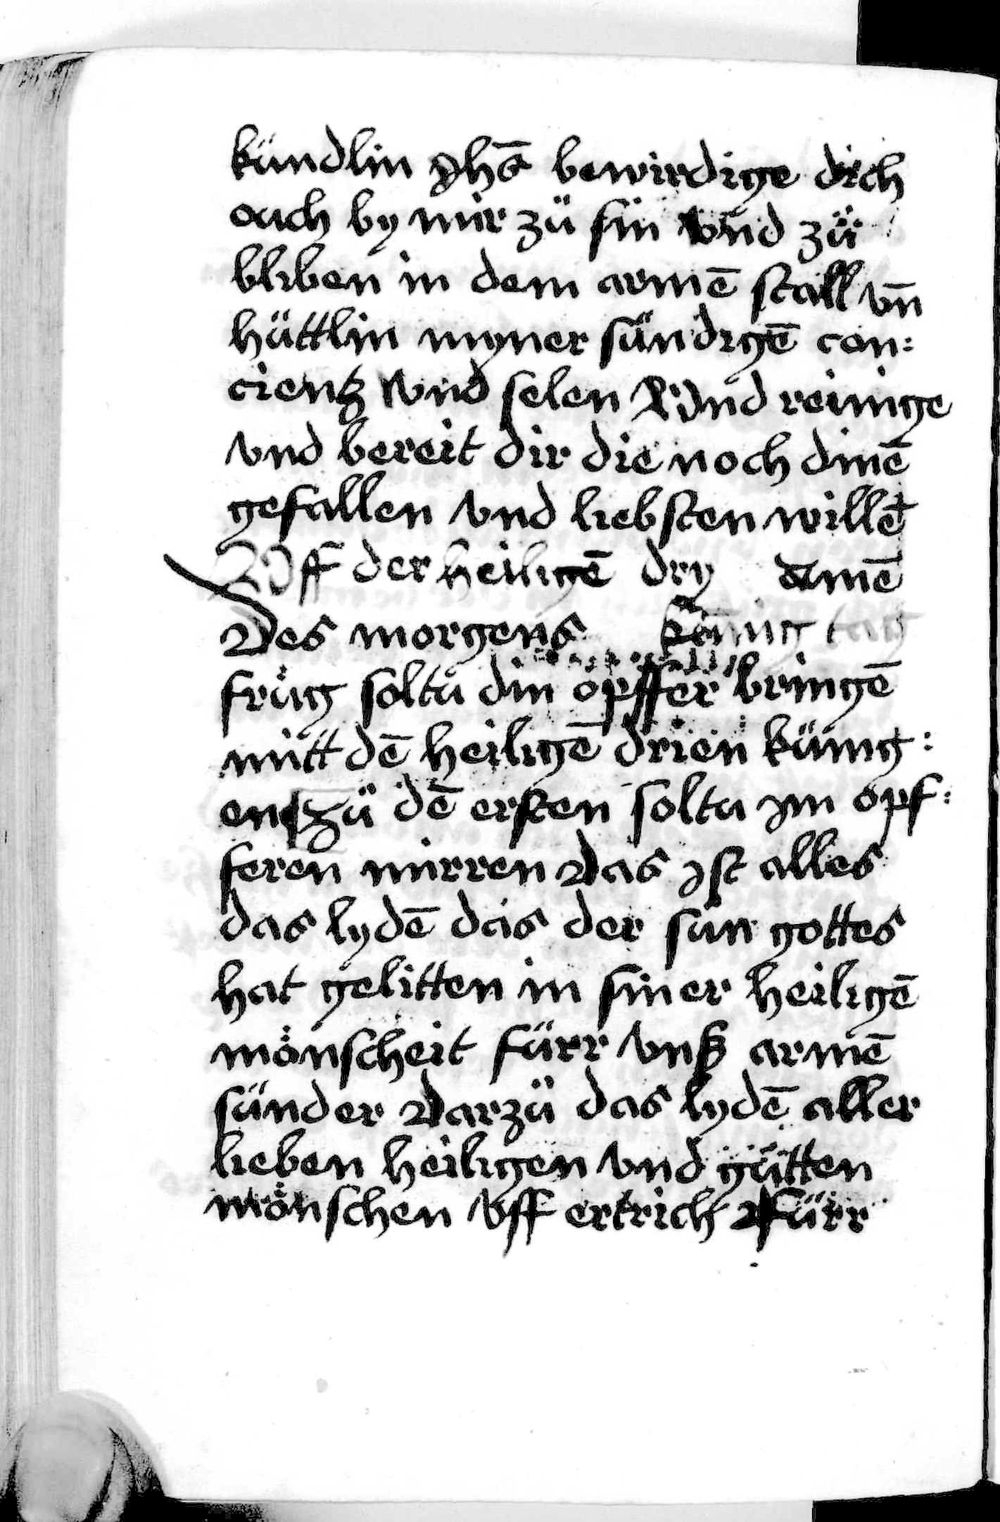 kündlin jhs̄ bewirdige dich
ouch by mir zü sin vnd zü
bliben in dem armē stall vn̄
hüttlin myner sündigē con:
cientz vnd selen vnd reinige
vnd bereit dir die noch dinē
gefallen vnd liebsten willē
Vff der heiligē dry amē
Des morgens künig tag
früg soltu din opffer bringē
mitt dē heiligē drien künig:
en zü dē ersten soltu im opf:
feren mirren Das ist alles
das lydē das der sün gottes
hat gelitten in siner heiligē
mönscheit fürr vnß armē
sünder Darzü das lydē aller
lieben heiligen vnd gütten
mönschen vff ertrich fürr